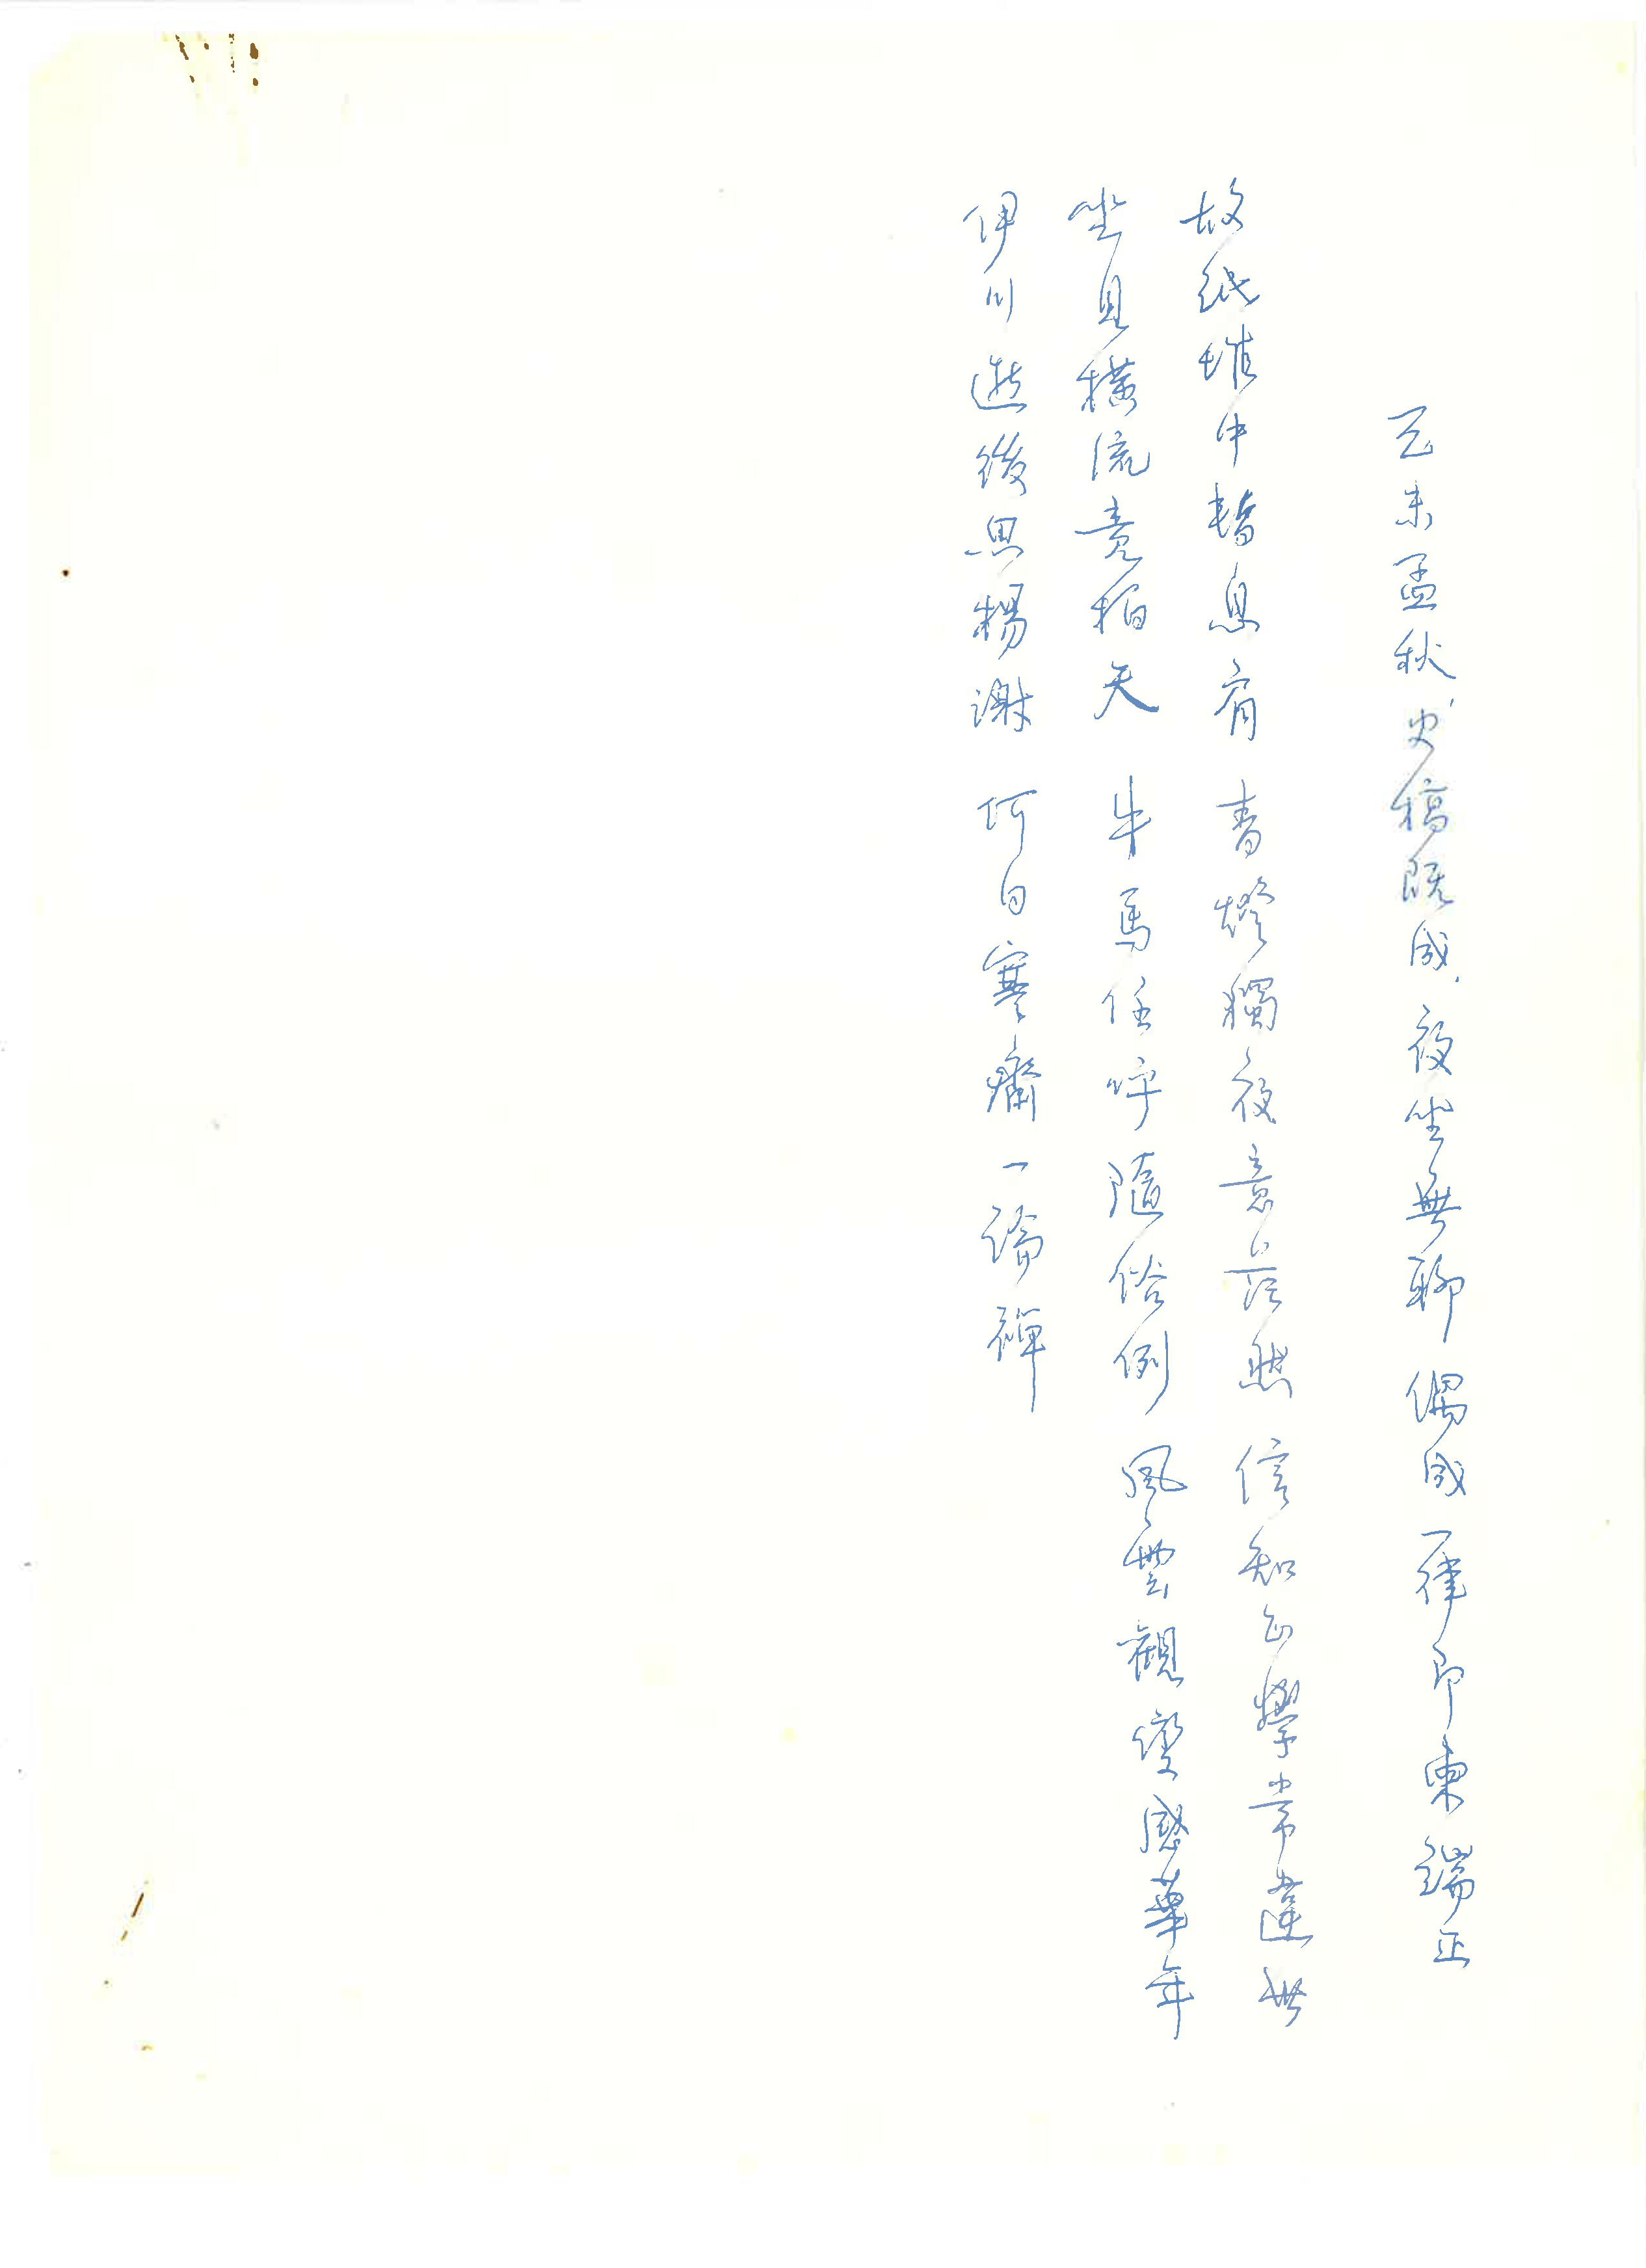 己未孟秋，史稿既成，夜坐無聊 偶成一律即柬 端正
故紙堆中暫息肩 青燈獨夜意茫然 信知正學常違世
坐見橫流竟拍天 牛馬任呼隨俗例 風雲觀變感華年
伊川逝後思楊謝 何日寒齋一論禪